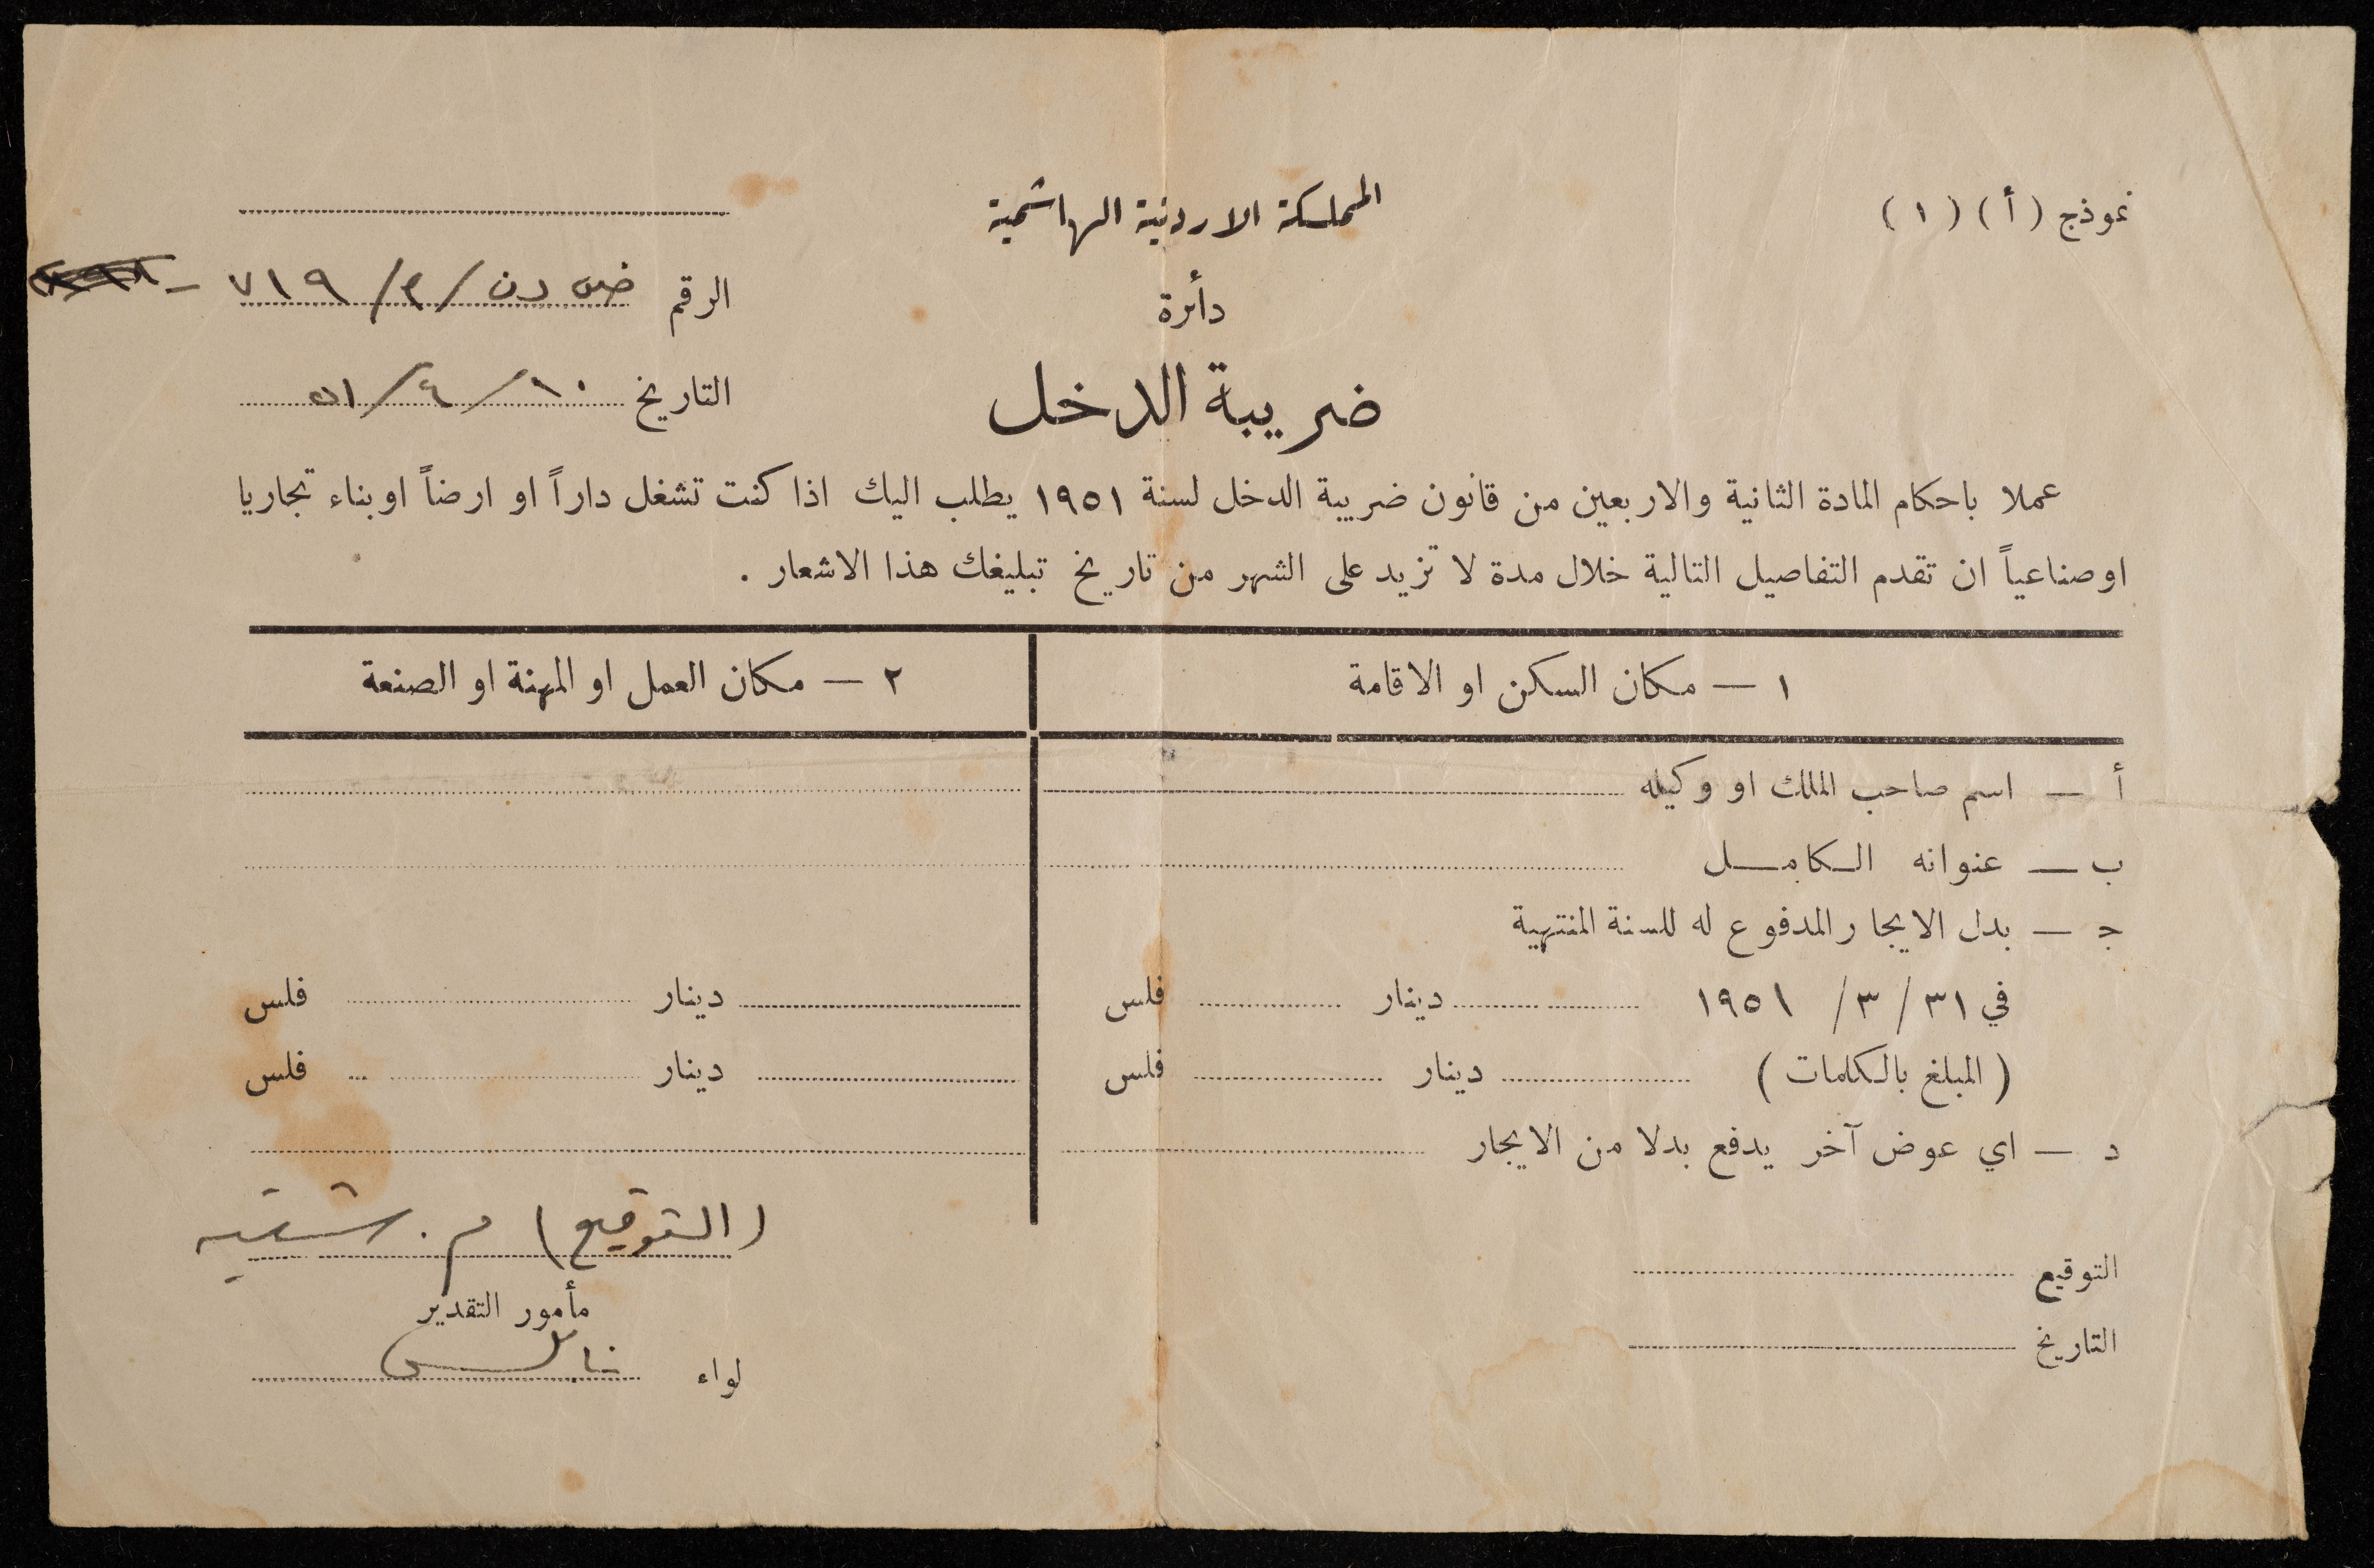 نموذج (أ) (١)
المملكة الاردنية الهاشمية
دأرة
ضريبة الدخل
الرقم ض دن/٢/٧١٩ -
التاريخ ١٠/٤/٥١
عملا باحكام المادة الثانية والاربعين من قانون ضريبة الدخل لسنة ١٩٥١ يطلب اليك اذا كنت تشغل داراً او ارضاً او بناء تجاريا
او صناعياً ان تقدم التفاصيل التالية خلال مدة لا تزيد على الشهر من تاريخ تبليغك هذا الاشعار .
١ — مكان السكن او الاقامة
٢ — مكان العمل او المهنة او الصنعة
أ — اسم صاحب الملك او وكيله
ب — عنوانه الكامل
ج — بدل الايجار المدفوع له للسنة المنتهية
في ٣١/٣/١٩٥١ دينار فلس دينار فلس
(المبلغ بالكلمات) دينار فلس دينار فلس
د — اي عوض آخر يدفع بدلا من الايجار
التوقيع
التاريخ
(التوقيع) م. شتيه
مأمور التقدير
لواء نابلس